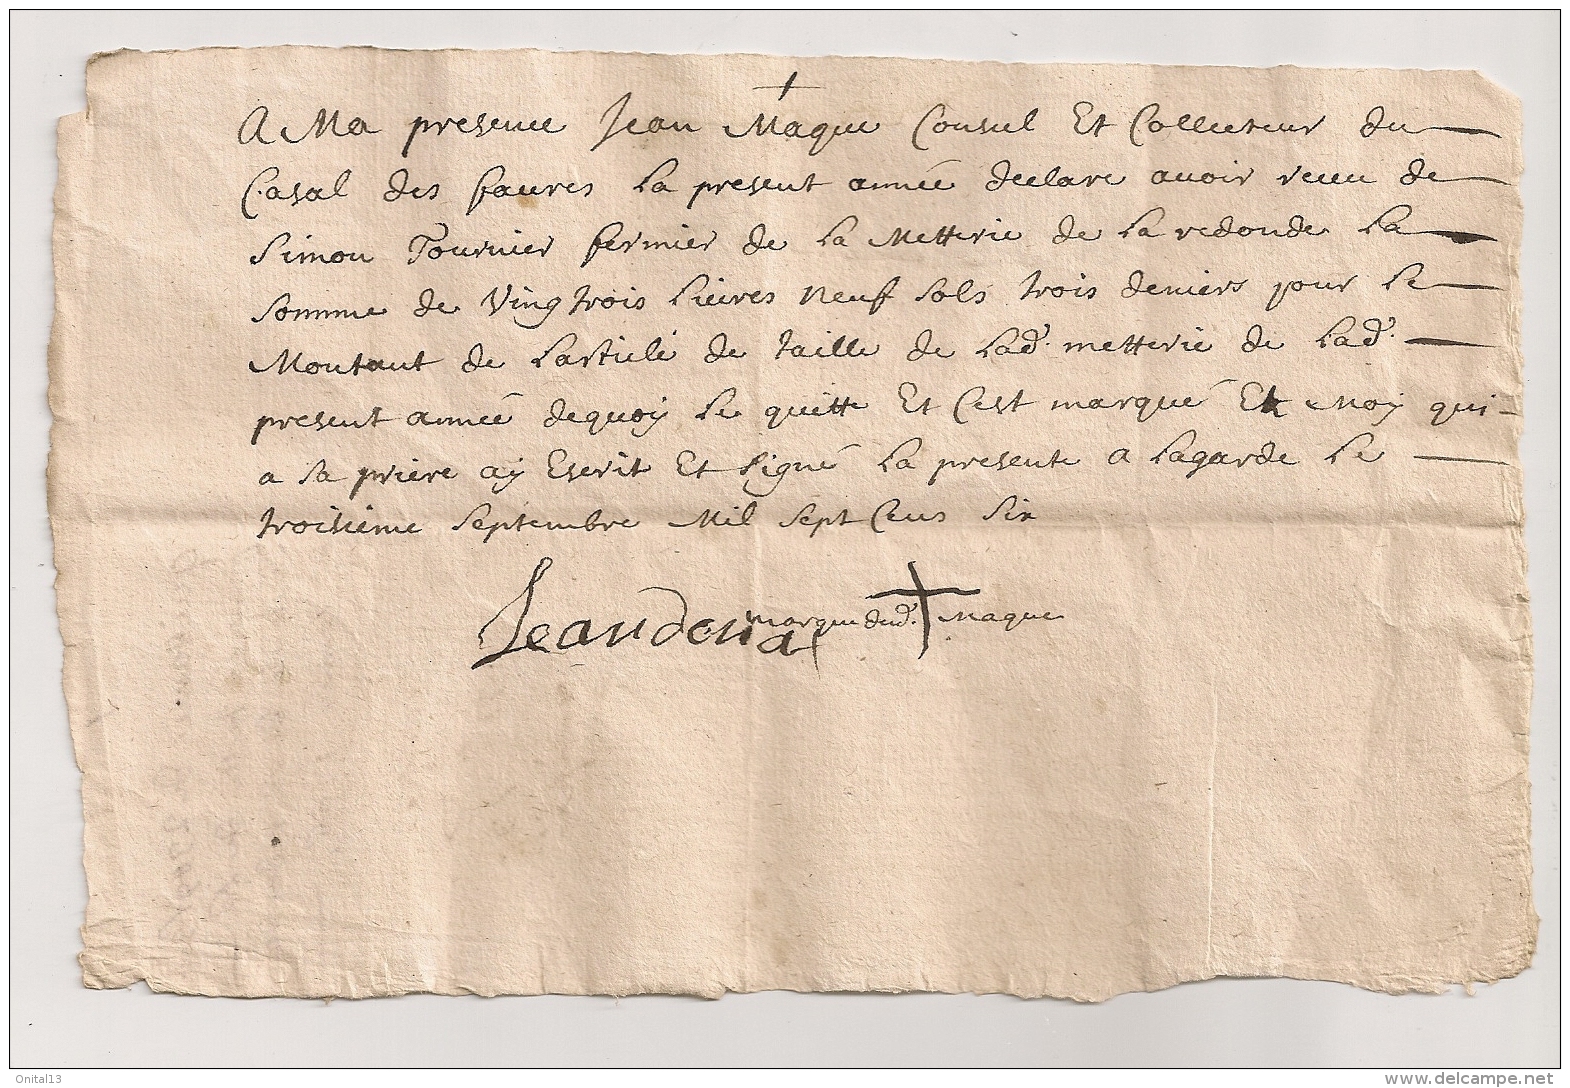 +
A Ma presence Jean Maque Consul Et Collecteur du
Casal des faures La present année declare avoir receu de
Simon Tournier fermier de La Metterie de La redonde La
somme de Vingtrois Livres Neuf sols trois deniers pour Le
Montant de Larticlé de taille de Lad. metterie de Lad.
present année dequoy Le quitte Et Cest marqué Et Moy qui
a sa priere ay Escrit Et signé La presente a Lagarde Le
troisieme septembre Mil sept Cens six
marque dud. + Maque
Onital13
www.delcampe.net